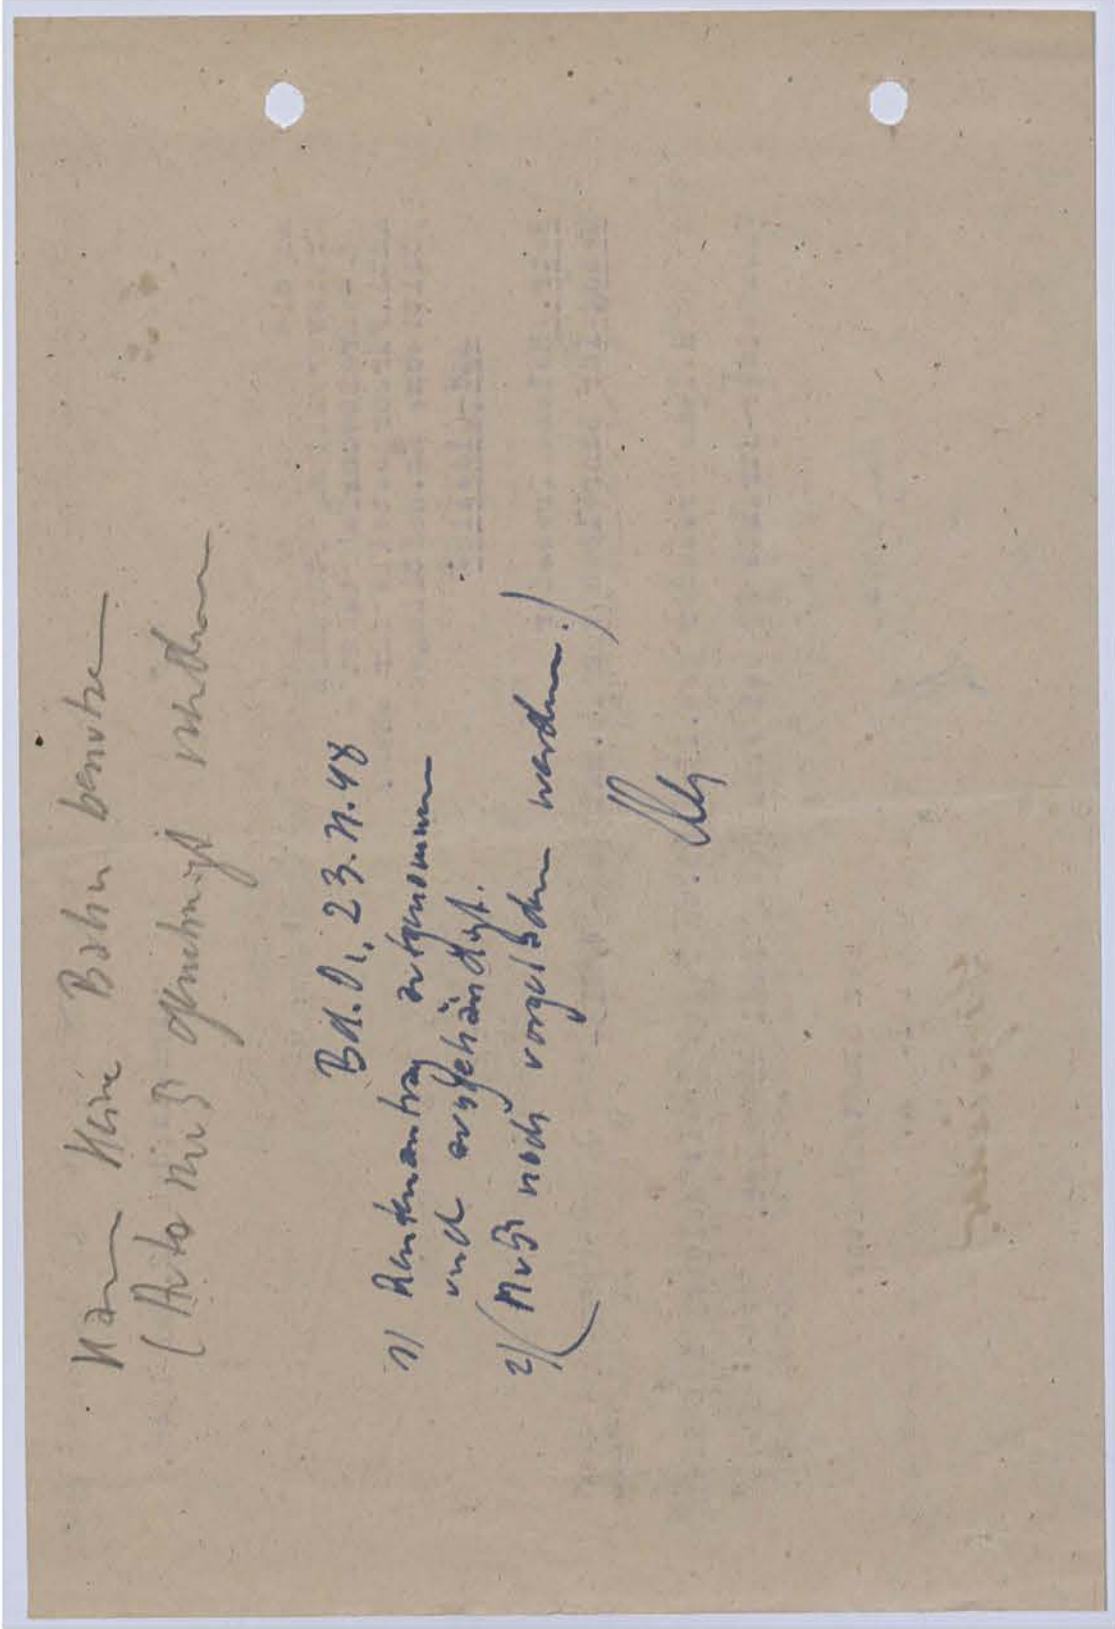 Kann keine Bahn benutzen
(Auto muß genehmigt werden
Bd. D., 23.11.48
1) Rentenantrag aufgenommen
und ausgehändigt.
2) (Muß noch vorgeladen werden.)